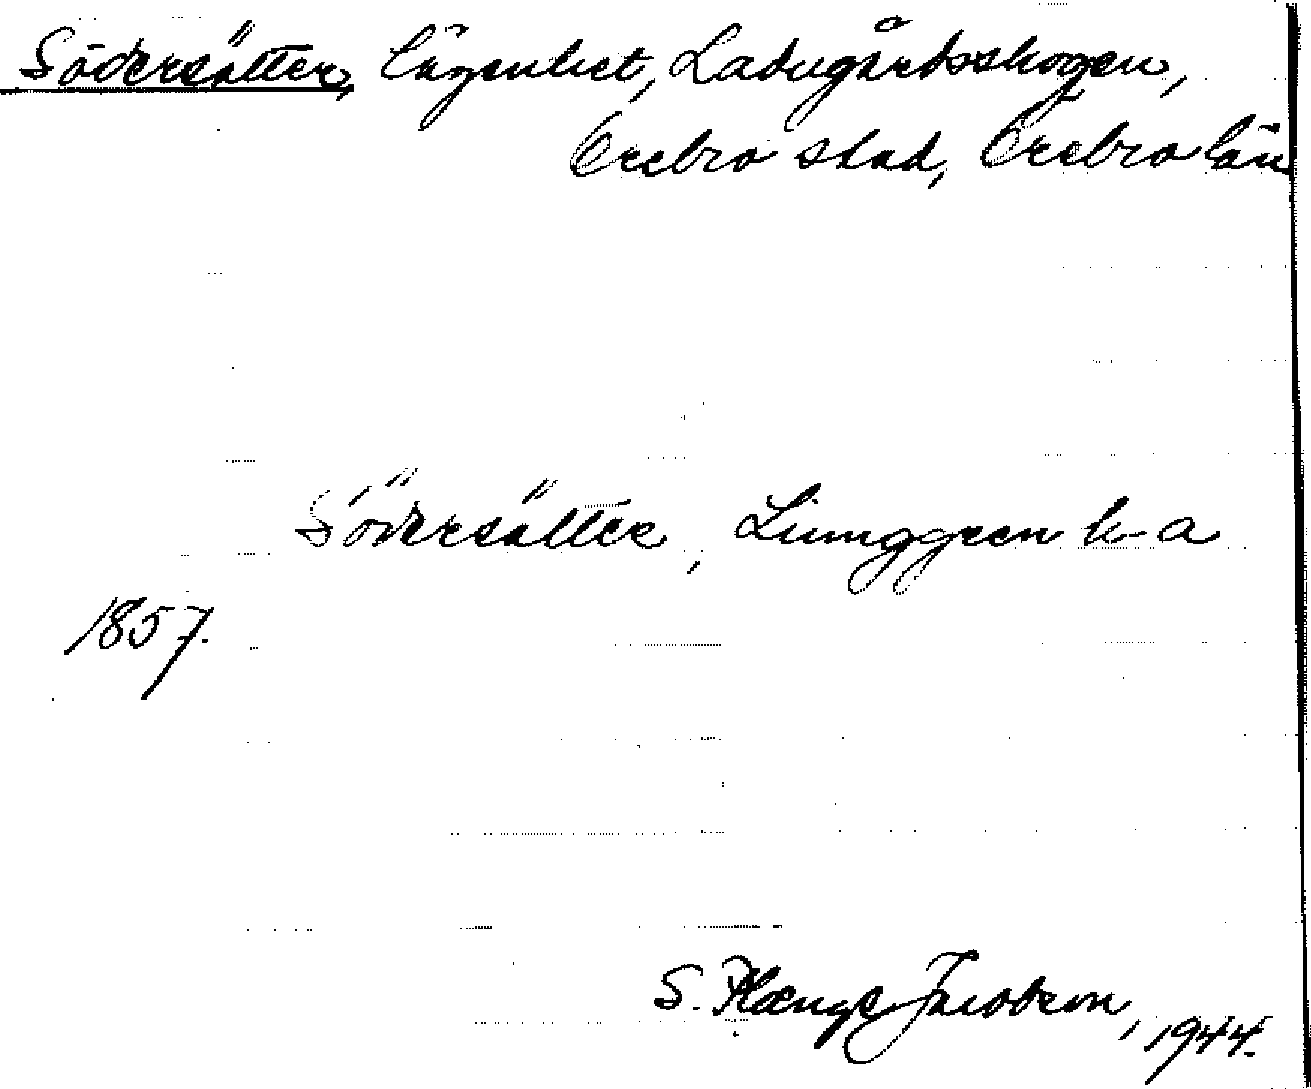 Södersätter, lägenhet, Ladugårdsskogen,
Örebro stad, Örebro län
Södersätter, Ljunggren k-a
1857.
S. Plænge Jacobson, 1944.